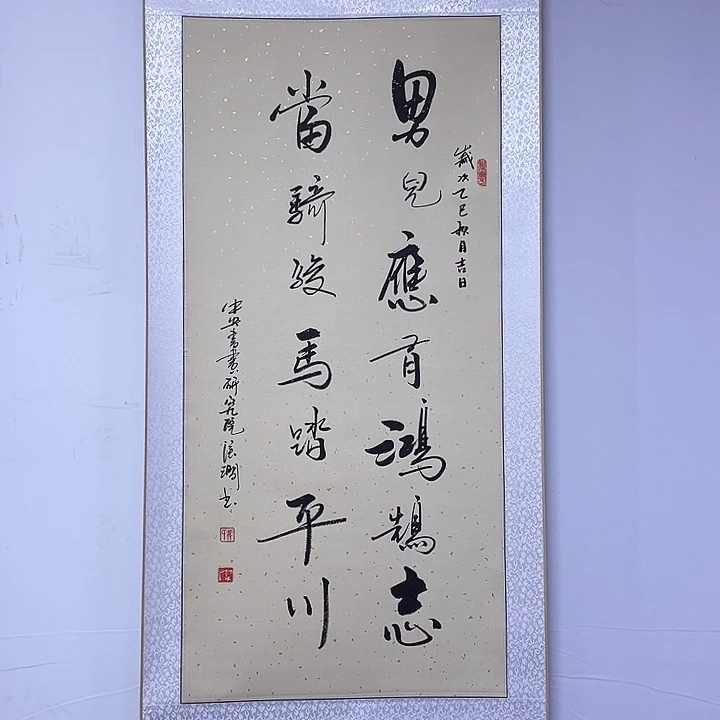 歲次乙巳秋月吉日
男兒應有鴻鵠志
當騎駿馬踏平川
書畫研究院
書